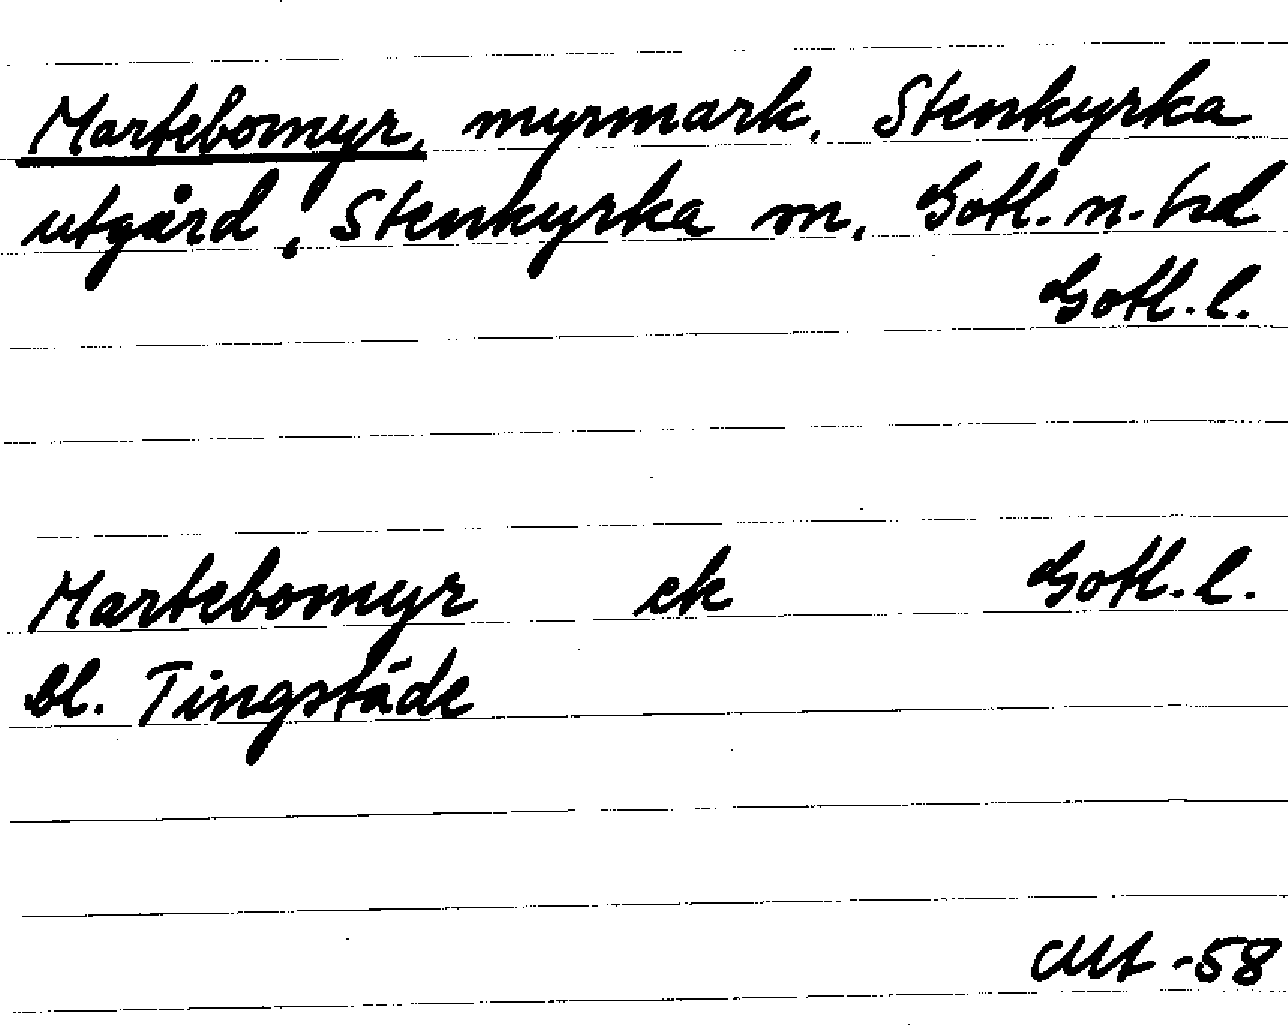 Martebomyr, myrmark, Stenkyrka
utgård, Stenkyrka sn, Gotl. n. hd
Gotl. l.
Martebomyr ek Gotl. l.
bl. Tingstäde
-58